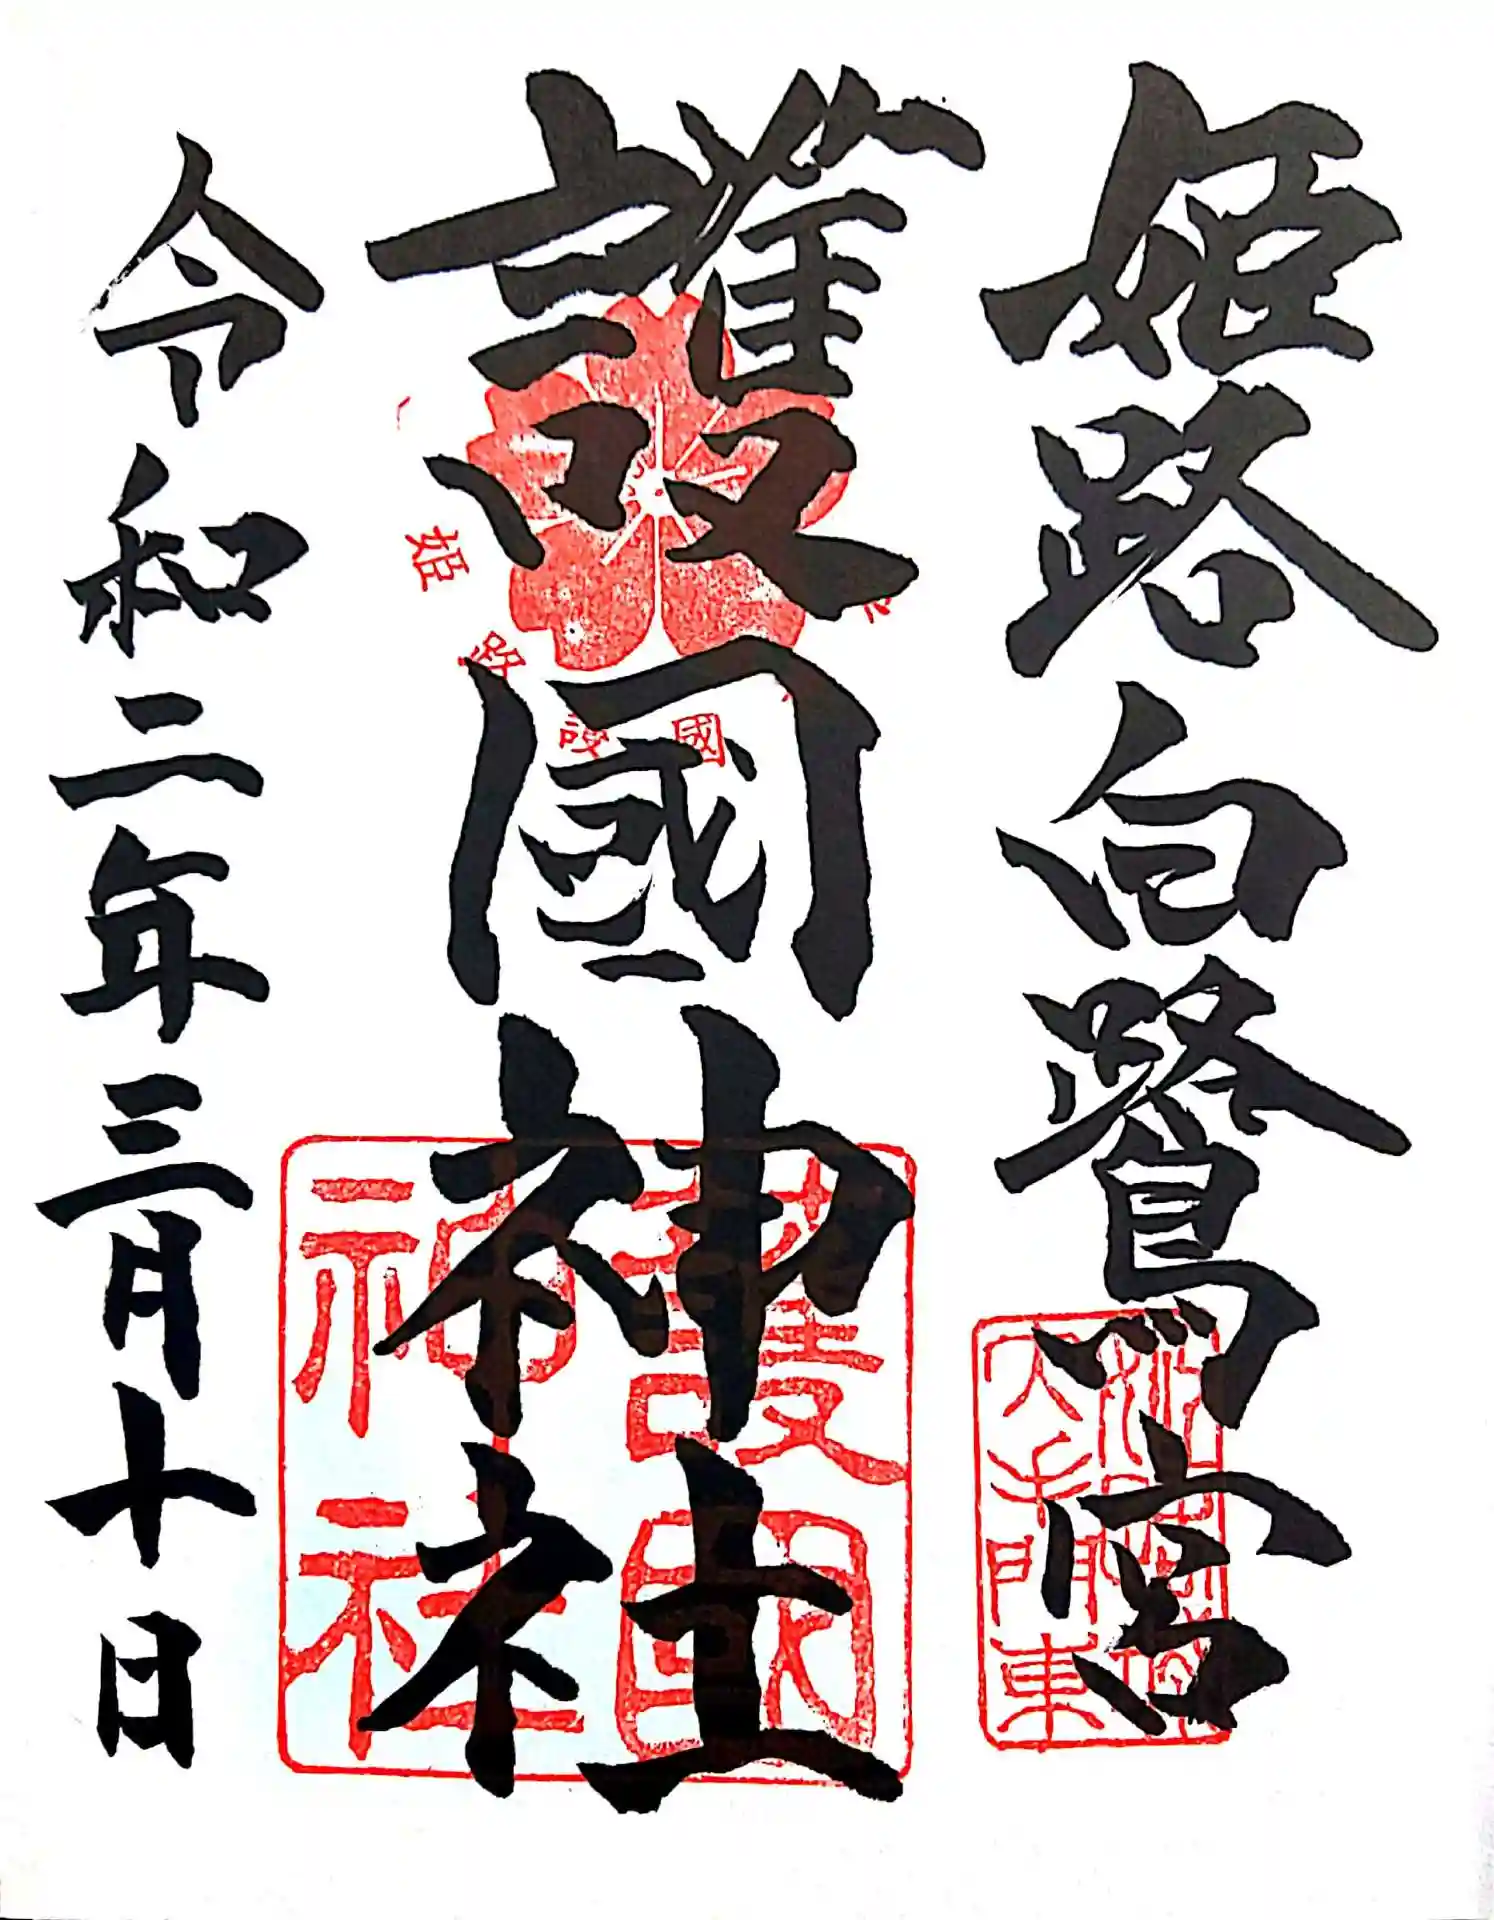 姫路白鷺宮
護國神社
令和二年三月十日
姫路護國
護國神社
大手門東